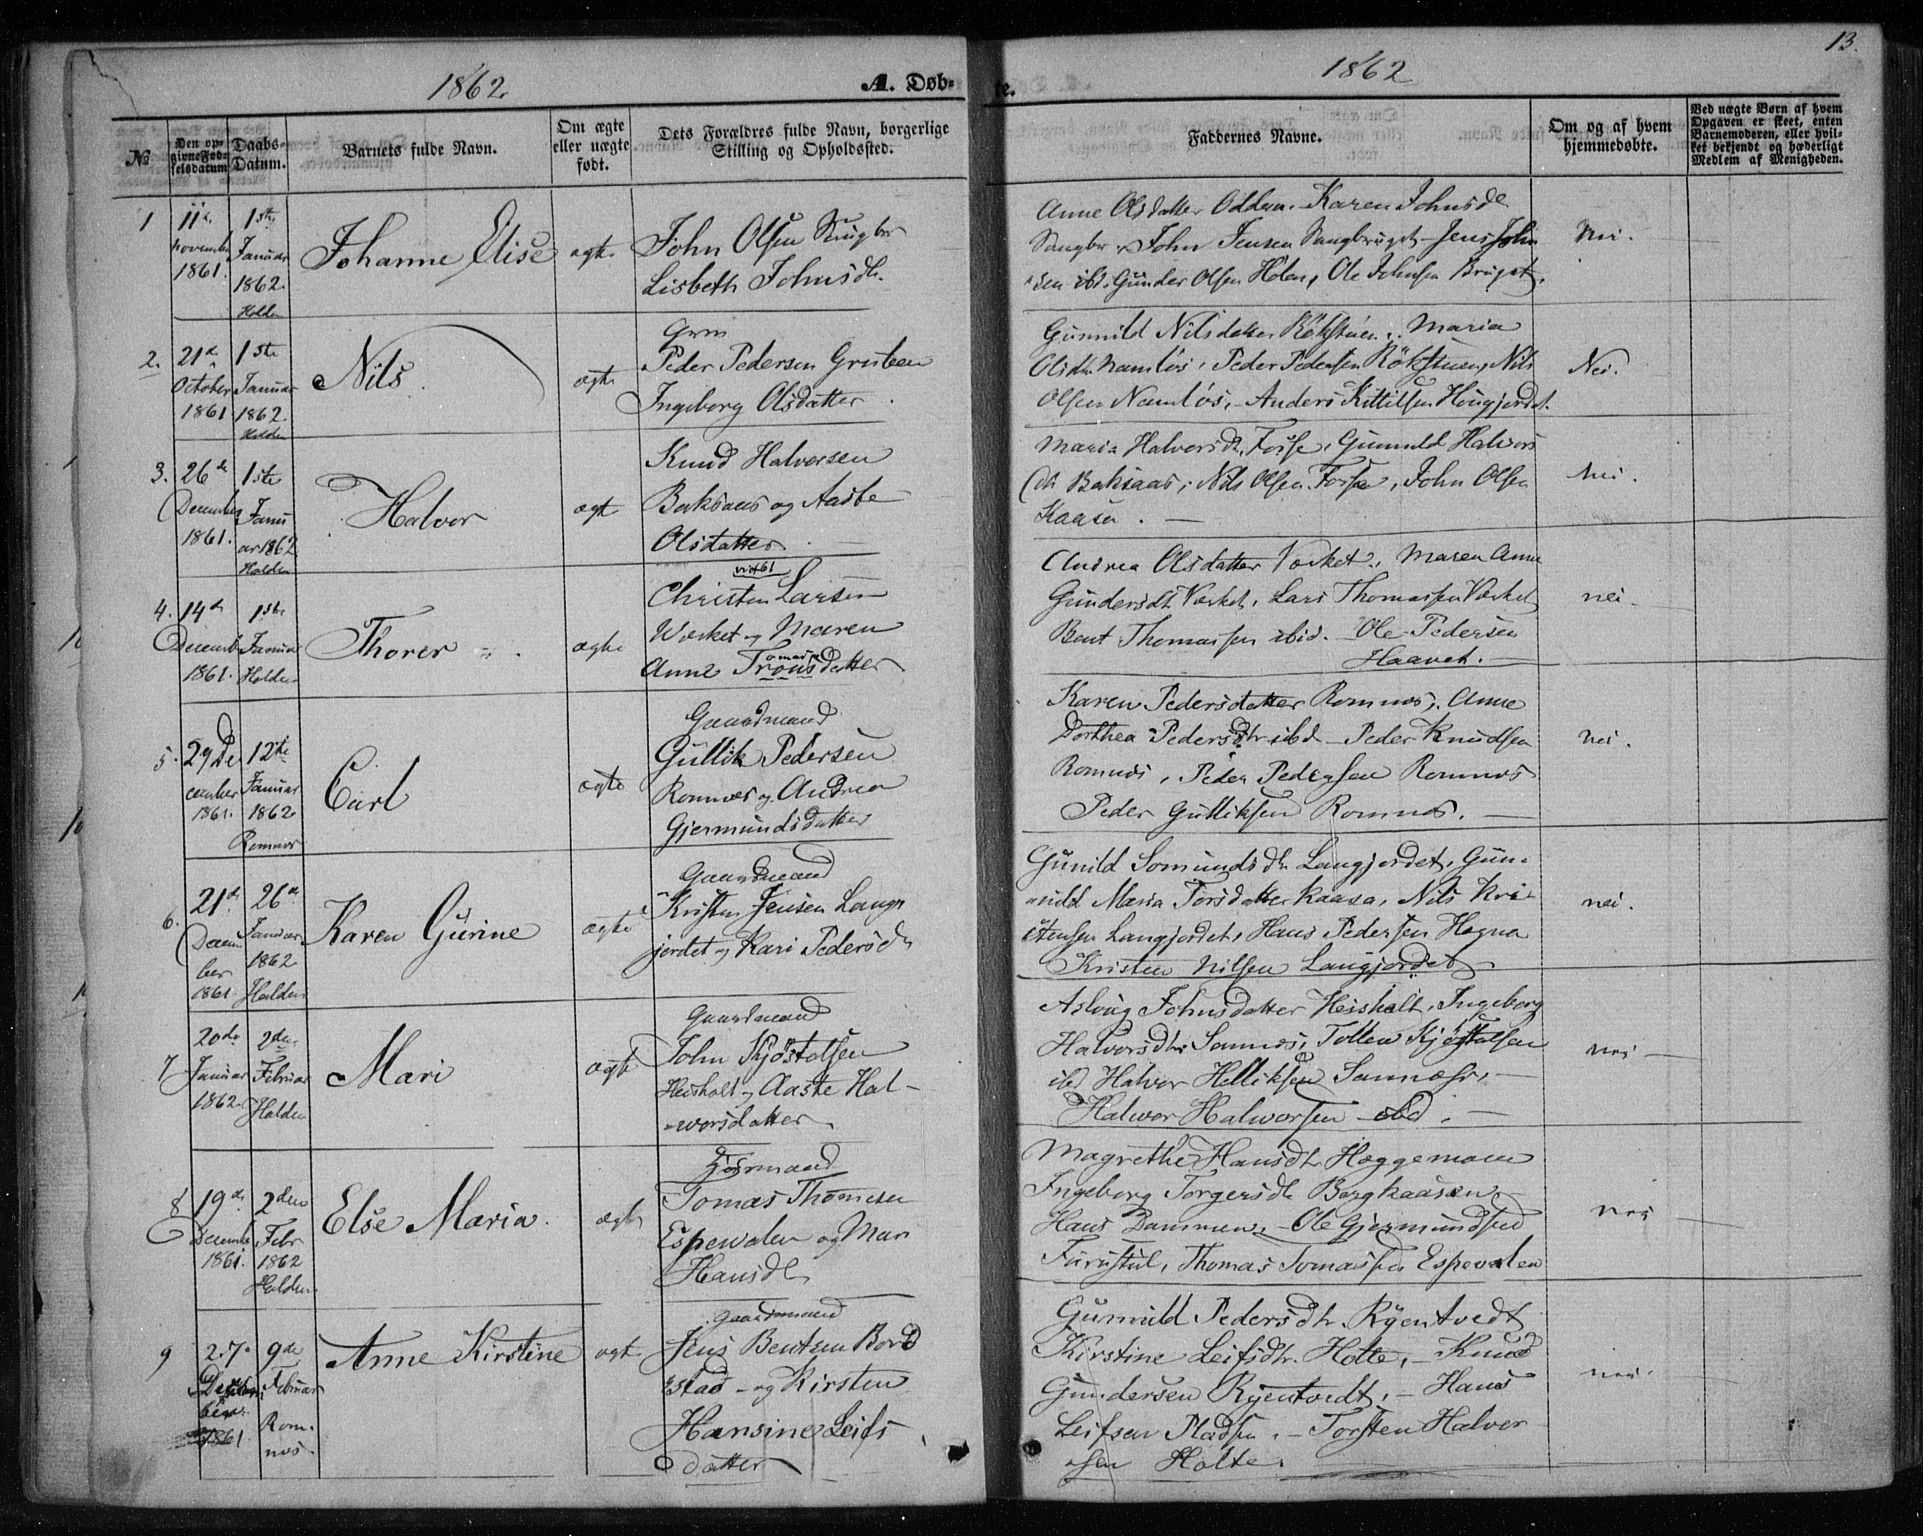 1862.
A. Døb-
te.
1862
13.
No
Den op-
givne Fød-
selsdatum
Daabs-
Datum.
Barnets fulde Navn.
Om ægte
eller uægte
født.
Dets Forældres fulde Navn, borgerlige
Stilling og Opholdssted.
Faddernes Navne.
Om og af hvem
hjemmedøbte.
Ved uægte Børn af hvem
Opgaven er skeet, enten
Barnemoderen, eller hvil-
ket bekjendt og hæderligt
Medlem af Menigheden.
1
11te
november
1861.
1ste
Januar
1862.
Holden
Johanne Elise
ægte
John Olsen
Lisbeth Johnsdtr.
Anne Olsdatter Odden. Karen Johnsdtr
John Jensen Sangbruget - Jens John
sen ibd. Gunder Olsen Holen, Ole Johnsen Bruget.
Nei.
2.
21de
October
1861.
1ste
Januar
1862.
Holden
Nils
ægte
Grm
Peder Pedersen Gruben
Ingeborg Olsdatter
Gunnild Nilsdatter Rökstuen, Maria
Olsdtr Namløs, Peder Pedersen Rökstuen, Nils
Olsen Namløs, - Anders Kittilsen Hougjordet.
Nei.
3.
26de
December
1861.
1ste
Janu
ar 1862
Holden
Halvor
ægte
Knud Halvorsen
Baksaas og Aaste
Olsdatter
Maria Halvorsdtr. Fosse, Gunnuld Halvors
dtr Baksaas, Nils Olsen Fosse, John Olsen
Kaasa. -
Nei.
4.
14de
Decemb
1861.
1ste
Januar
Holden
Thorer
ægte
Christen Larsen
Værket og Maren
Anne Tronsdatter
omas
Andrea Olsdatter Værket, Maren Anne
Gundersdtr Værket, Lars Thomassen Værket
Bent Thomassen ibid. Ole Pedersen
Haavet. -
nei
5.
29 De
cember
1861.
12te
Januar
1862
Romnæs
Carl
ægte
Gaardmand
Gullik Pedersen
Romnæs og Andrea
Gjermundsdatter
Karen Pedersdatter Romnæs, Anne
Dorthea Pedersdtr ibd - Peder Knudsen
Romnæs, Peder Pedersen Romnæs
Peder Gulliksen Romnæs. -
nei.
6.
21de
Decem
ber
1861.
26de
Januar
1862
Holden
Karen Gurine
ægte
Gaardmand
Kristen Jensen Lang
jordet og Kari Pedersdtr
Gunild Somundsdtr Langjordet, Gun-
nild Maria Torsdatter Kaasa, Nils Kri-
stensen Langjordet, Hans Pedersen Hogna
Kristen Nilsen Langjordet
nei.
7
20de
Januar
1862.
2den
Februar
Holden
Mari
ægte
Gaardmand
John Kjöstolsen
Heisholt og Aaste Hal-
vorsdatter.
Asloug Johnsdatter Heisholt, Ingeborg
Halvorsdtr Sannæs, Tollen Kjöstolsen
ibd Halvor Helliksen Sannæs, -
Halvor Halvorsen ibd. -
nei -
8
19de
Decemb
1861.
2den
Febr
1862
Holden
Else Maria.
ægte
Tomas Thomesen
Espevalen og Mari
Hansdtr
Magrethe Hansdtr Haggemoen
Ingeborg Torgersdtr Bergkaasen
Hans Dammen, - Ole Gjermundsen
Furustul, Thomas Tomassen Espevalen
nei
9
27.
Decem
ber
1861
9de
Februar
Rom-
næs
Anne Kirstine
ægte
Gaardmand
Jens Bentsen Bord
stad - og Kirsten
Hansine Leifs
datter
Gunnuld Pedersdtr. Ryentvedt
Kirstine Leifsdtr. Holte, - Knud
Gundersen Ryentvedt, - Hans
Leifsen Pladsen. - Torsten Halvor
sen Holte.
nei.